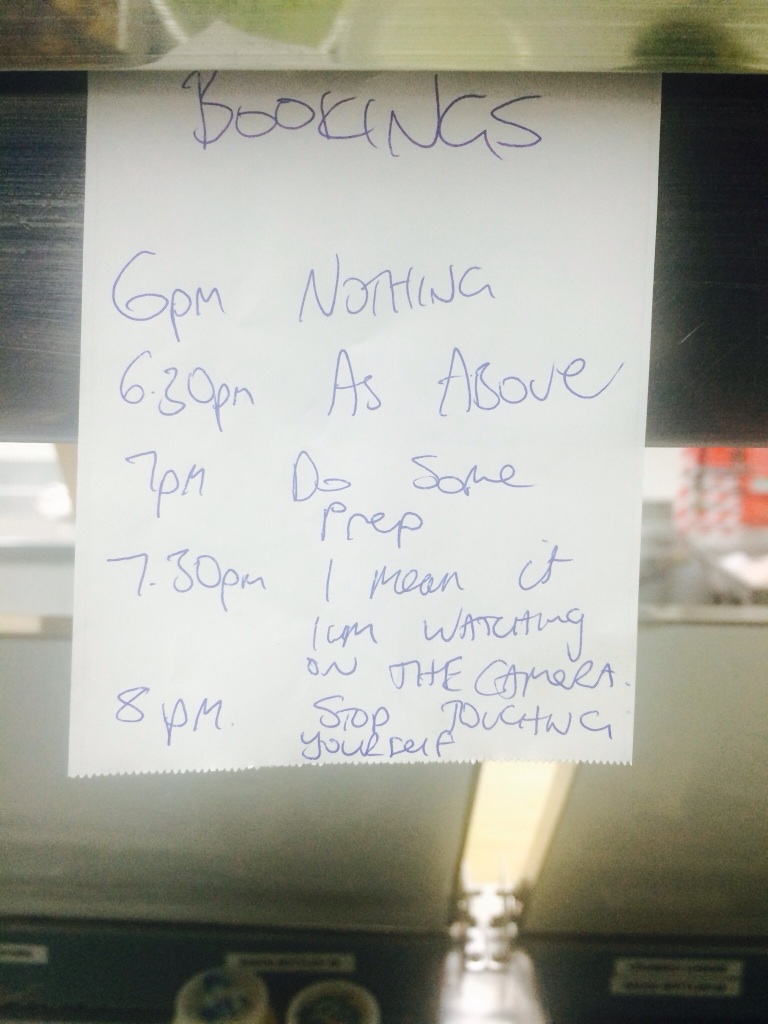 BOOKINGS
6pm NOTHING
6.30pm As Above
7pm Do Some
Prep
7.30pm I mean it
I am WATCHING
ON THE CAMERA.
8pm. STOP TOUCHING
YOURSELF